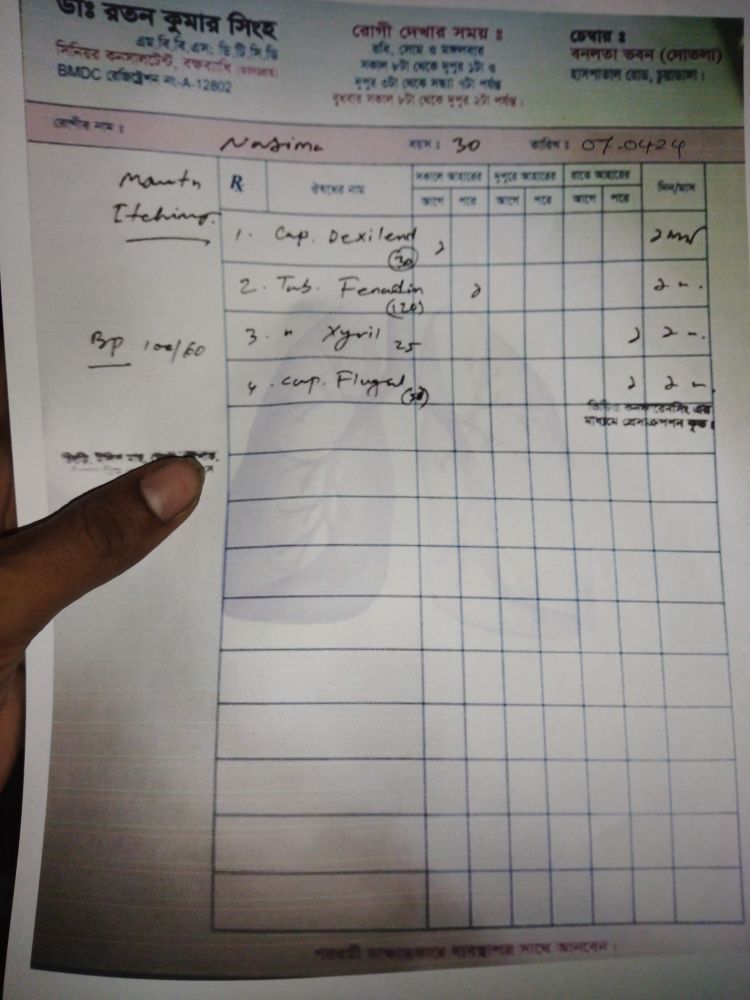 ডাঃ রতন কুমার সিংহ
এম.বি.বি.এস; ডি.টি.সি.ডি
সিনিয়র কনসালটেন্ট, বক্ষব্যাধি
BMDC রেজিষ্ট্রেশন নং-A-12802
রোগী দেখার সময় ঃ
রবি, সোম ও মঙ্গলবার
সকাল ৮টা থেকে দুপুর ১টা ও
দুপুর ৩টা থেকে সন্ধ্যা ৭টা পর্যন্ত
বুধবার সকাল ৮টা থেকে দুপুর ২টা পর্যন্ত।
চেম্বার ঃ
বনলতা ভবন (দোতলা)
হাসপাতাল রোড, চুয়াডাঙ্গা।
রোগীর নাম ঃ Nasima বয়স ঃ 30 তারিখ ঃ 07.04.24
Itching.
BP 100/60
R ঔষধের নাম সকালে আহারের দুপুরে আহারের রাতে আহারের দিন/মাস
আগে পরে আগে পরে আগে পরে
1. Cap. Dexilend ১
(30)
2. Tab. Fenadin ১
(120)
3. " Xyril 25 ১
4. Cap. Flugal ১
(50)
মাধ্যমে প্রেসক্রিপশন কৃত।
পরবর্তী সাক্ষাতকারে ব্যবস্থাপত্র সাথে আনবেন।